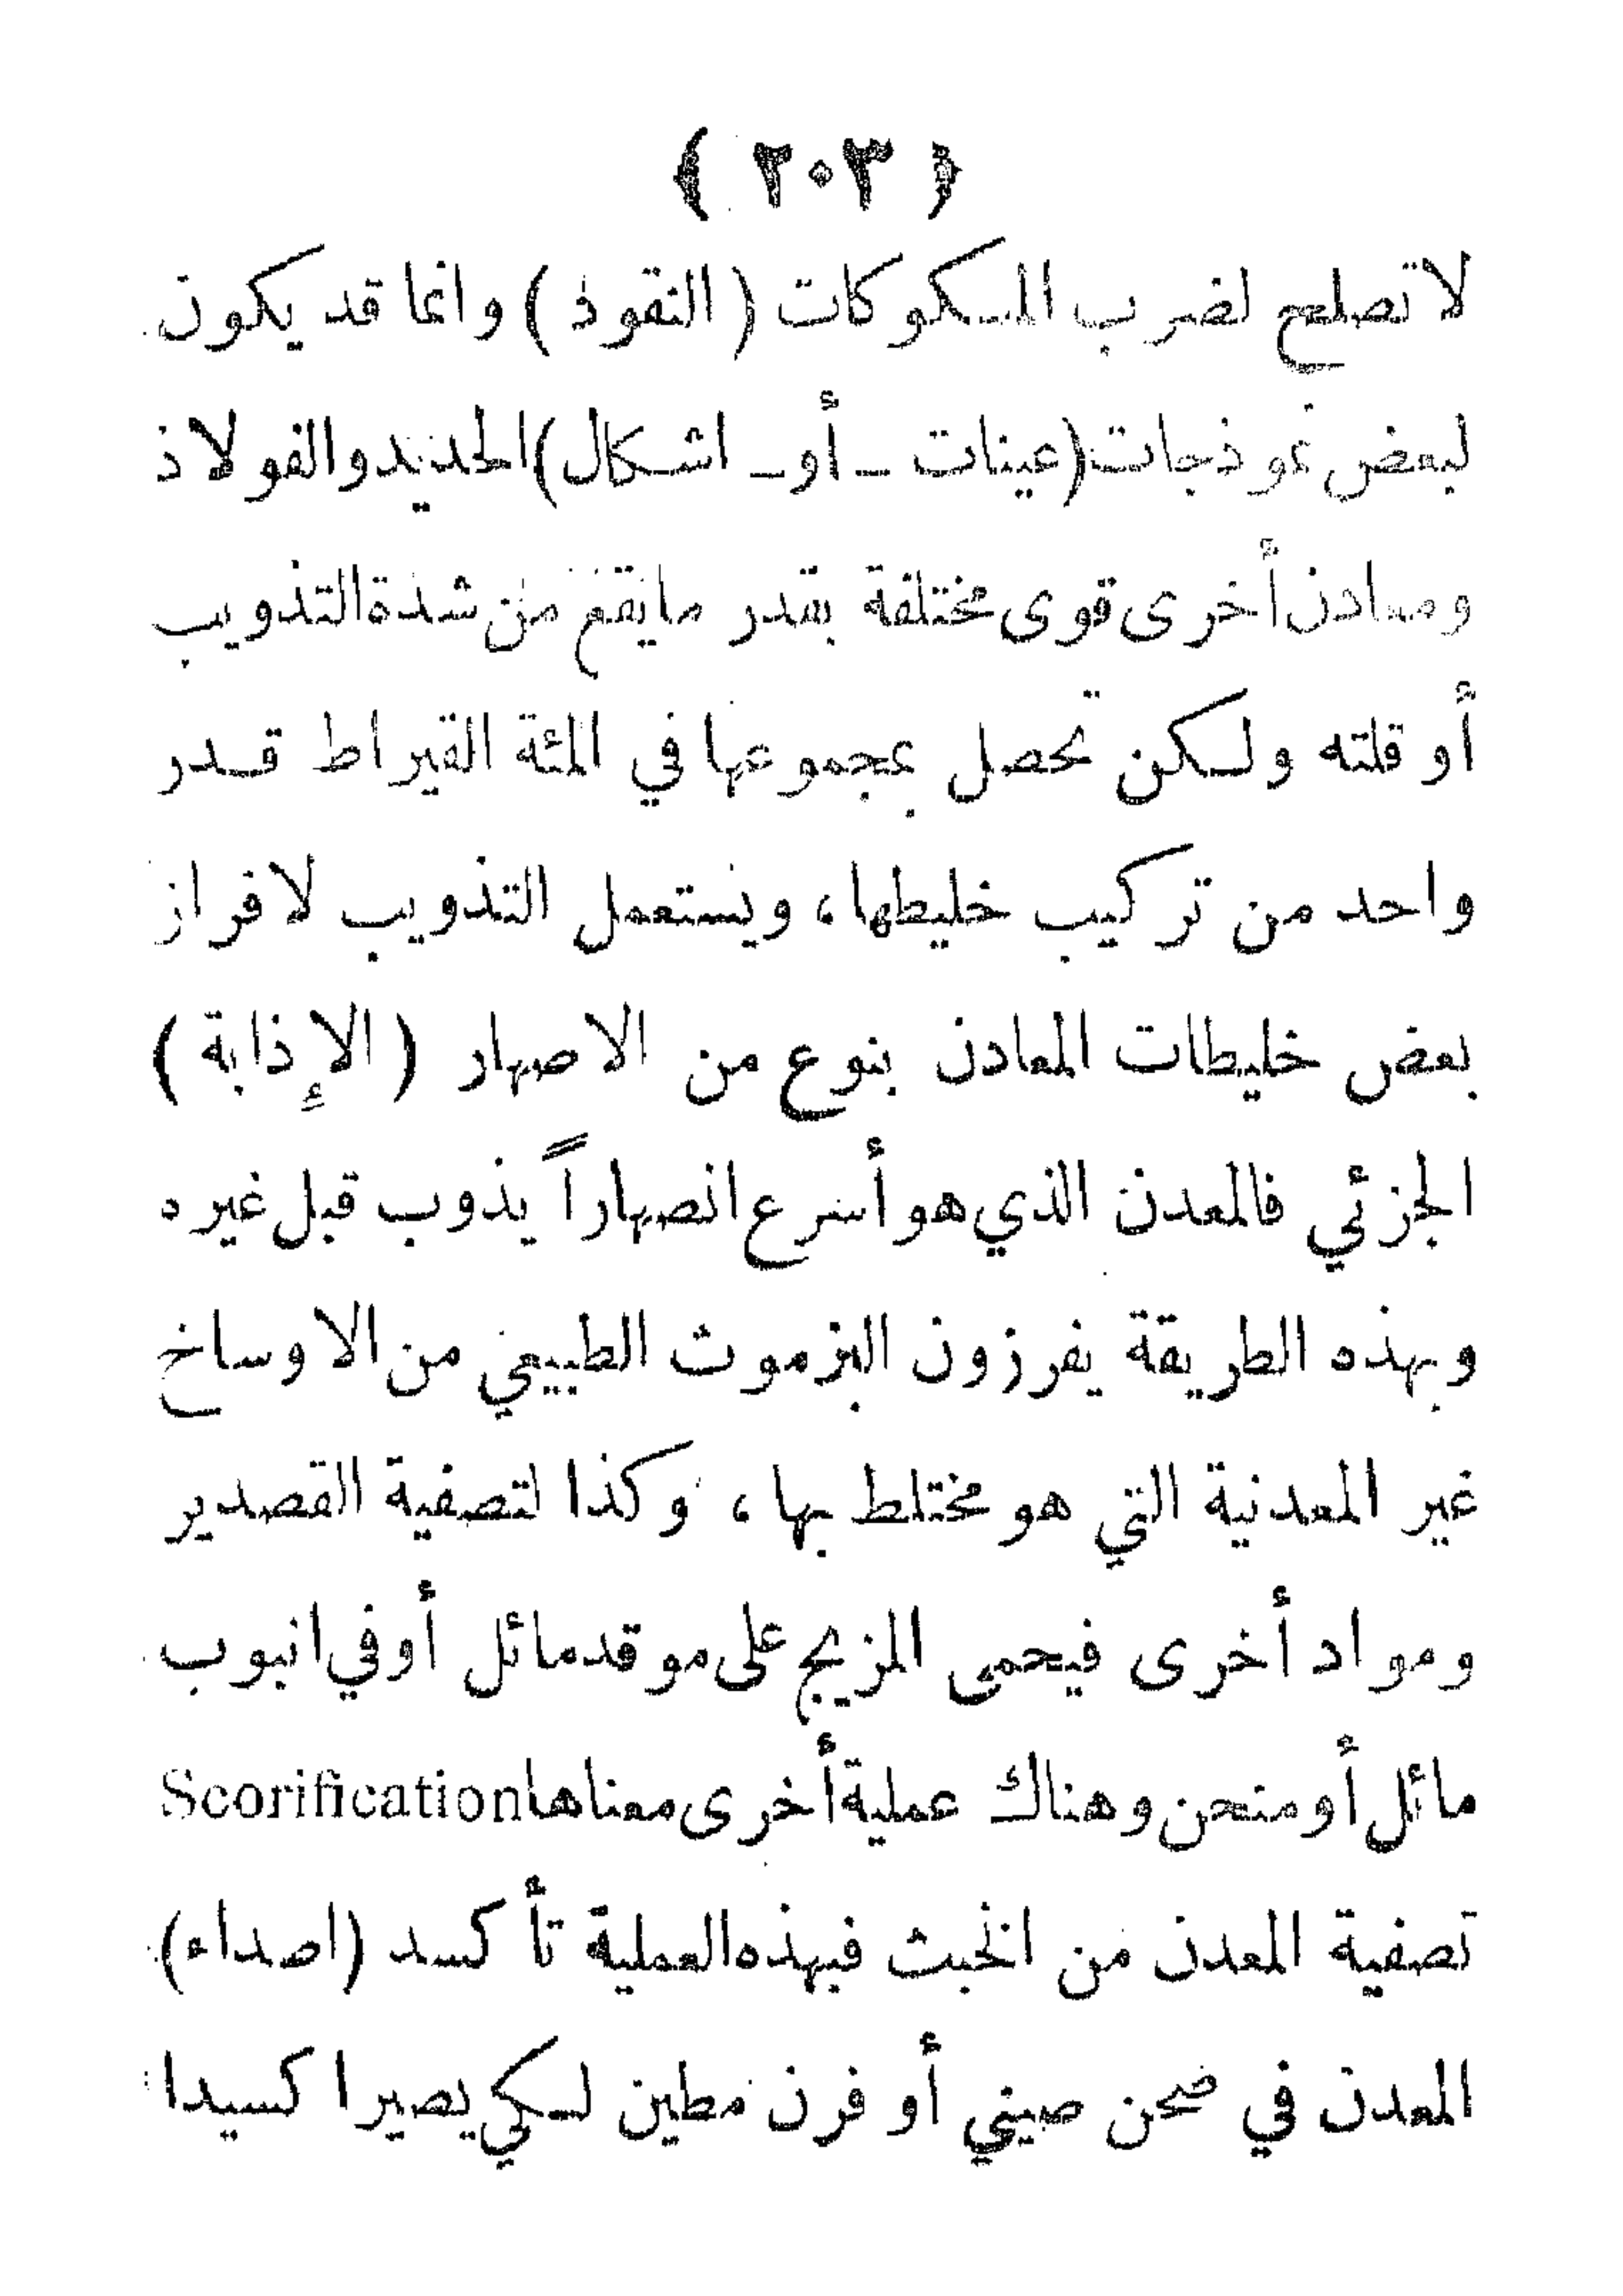 ( ٢٠٣ )
لا تصلح لضرب المسكوكات ( النقود ) وانما قد يكون
لبعض نموذجات (عينات ـ أو ـ اشكال) الحديد والفولاذ
ومعادن أخرى قوى مختلفة بقدر مايقع من شدة التذويب
أو قلته ولكن تحصل بمجموعها في المئة القيراط قدر
واحد من تركيب خليطها، ويستعمل التذويب لافراز
بعض خليطات المعادن بنوع من الاصهار ( الإذابة )
الجزئي فالمعدن الذي هو أسرع انصهاراً يذوب قبل غيره
وبهذه الطريقة يفرزون البزموث الطبيعي من الاوساخ
غير المعدنية التي هو مختلط بها، وكذا لتصفية القصدير
ومواد أخرى فيحمى المزيج على موقد مائل أو في انبوب
مائل أو منحن وهناك عملية أخرى معناها Scorification
تصفية المعدن من الخبث فبهذه العملية تأكسد (اصداء)
المعدن في صحن صيني أو فرن مطين لكي يصير اكسيدا